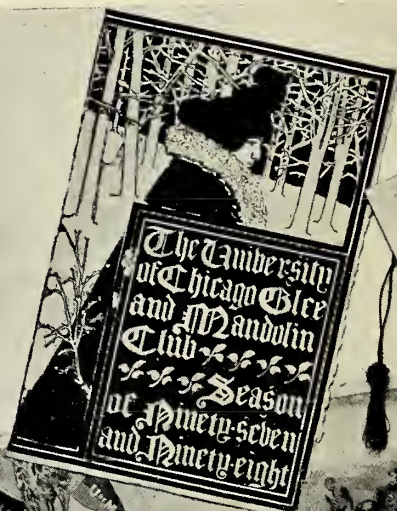 The University
of Chicago Glee
and Mandolin
Club
Season
of Ninety-seven
and Ninety-eight